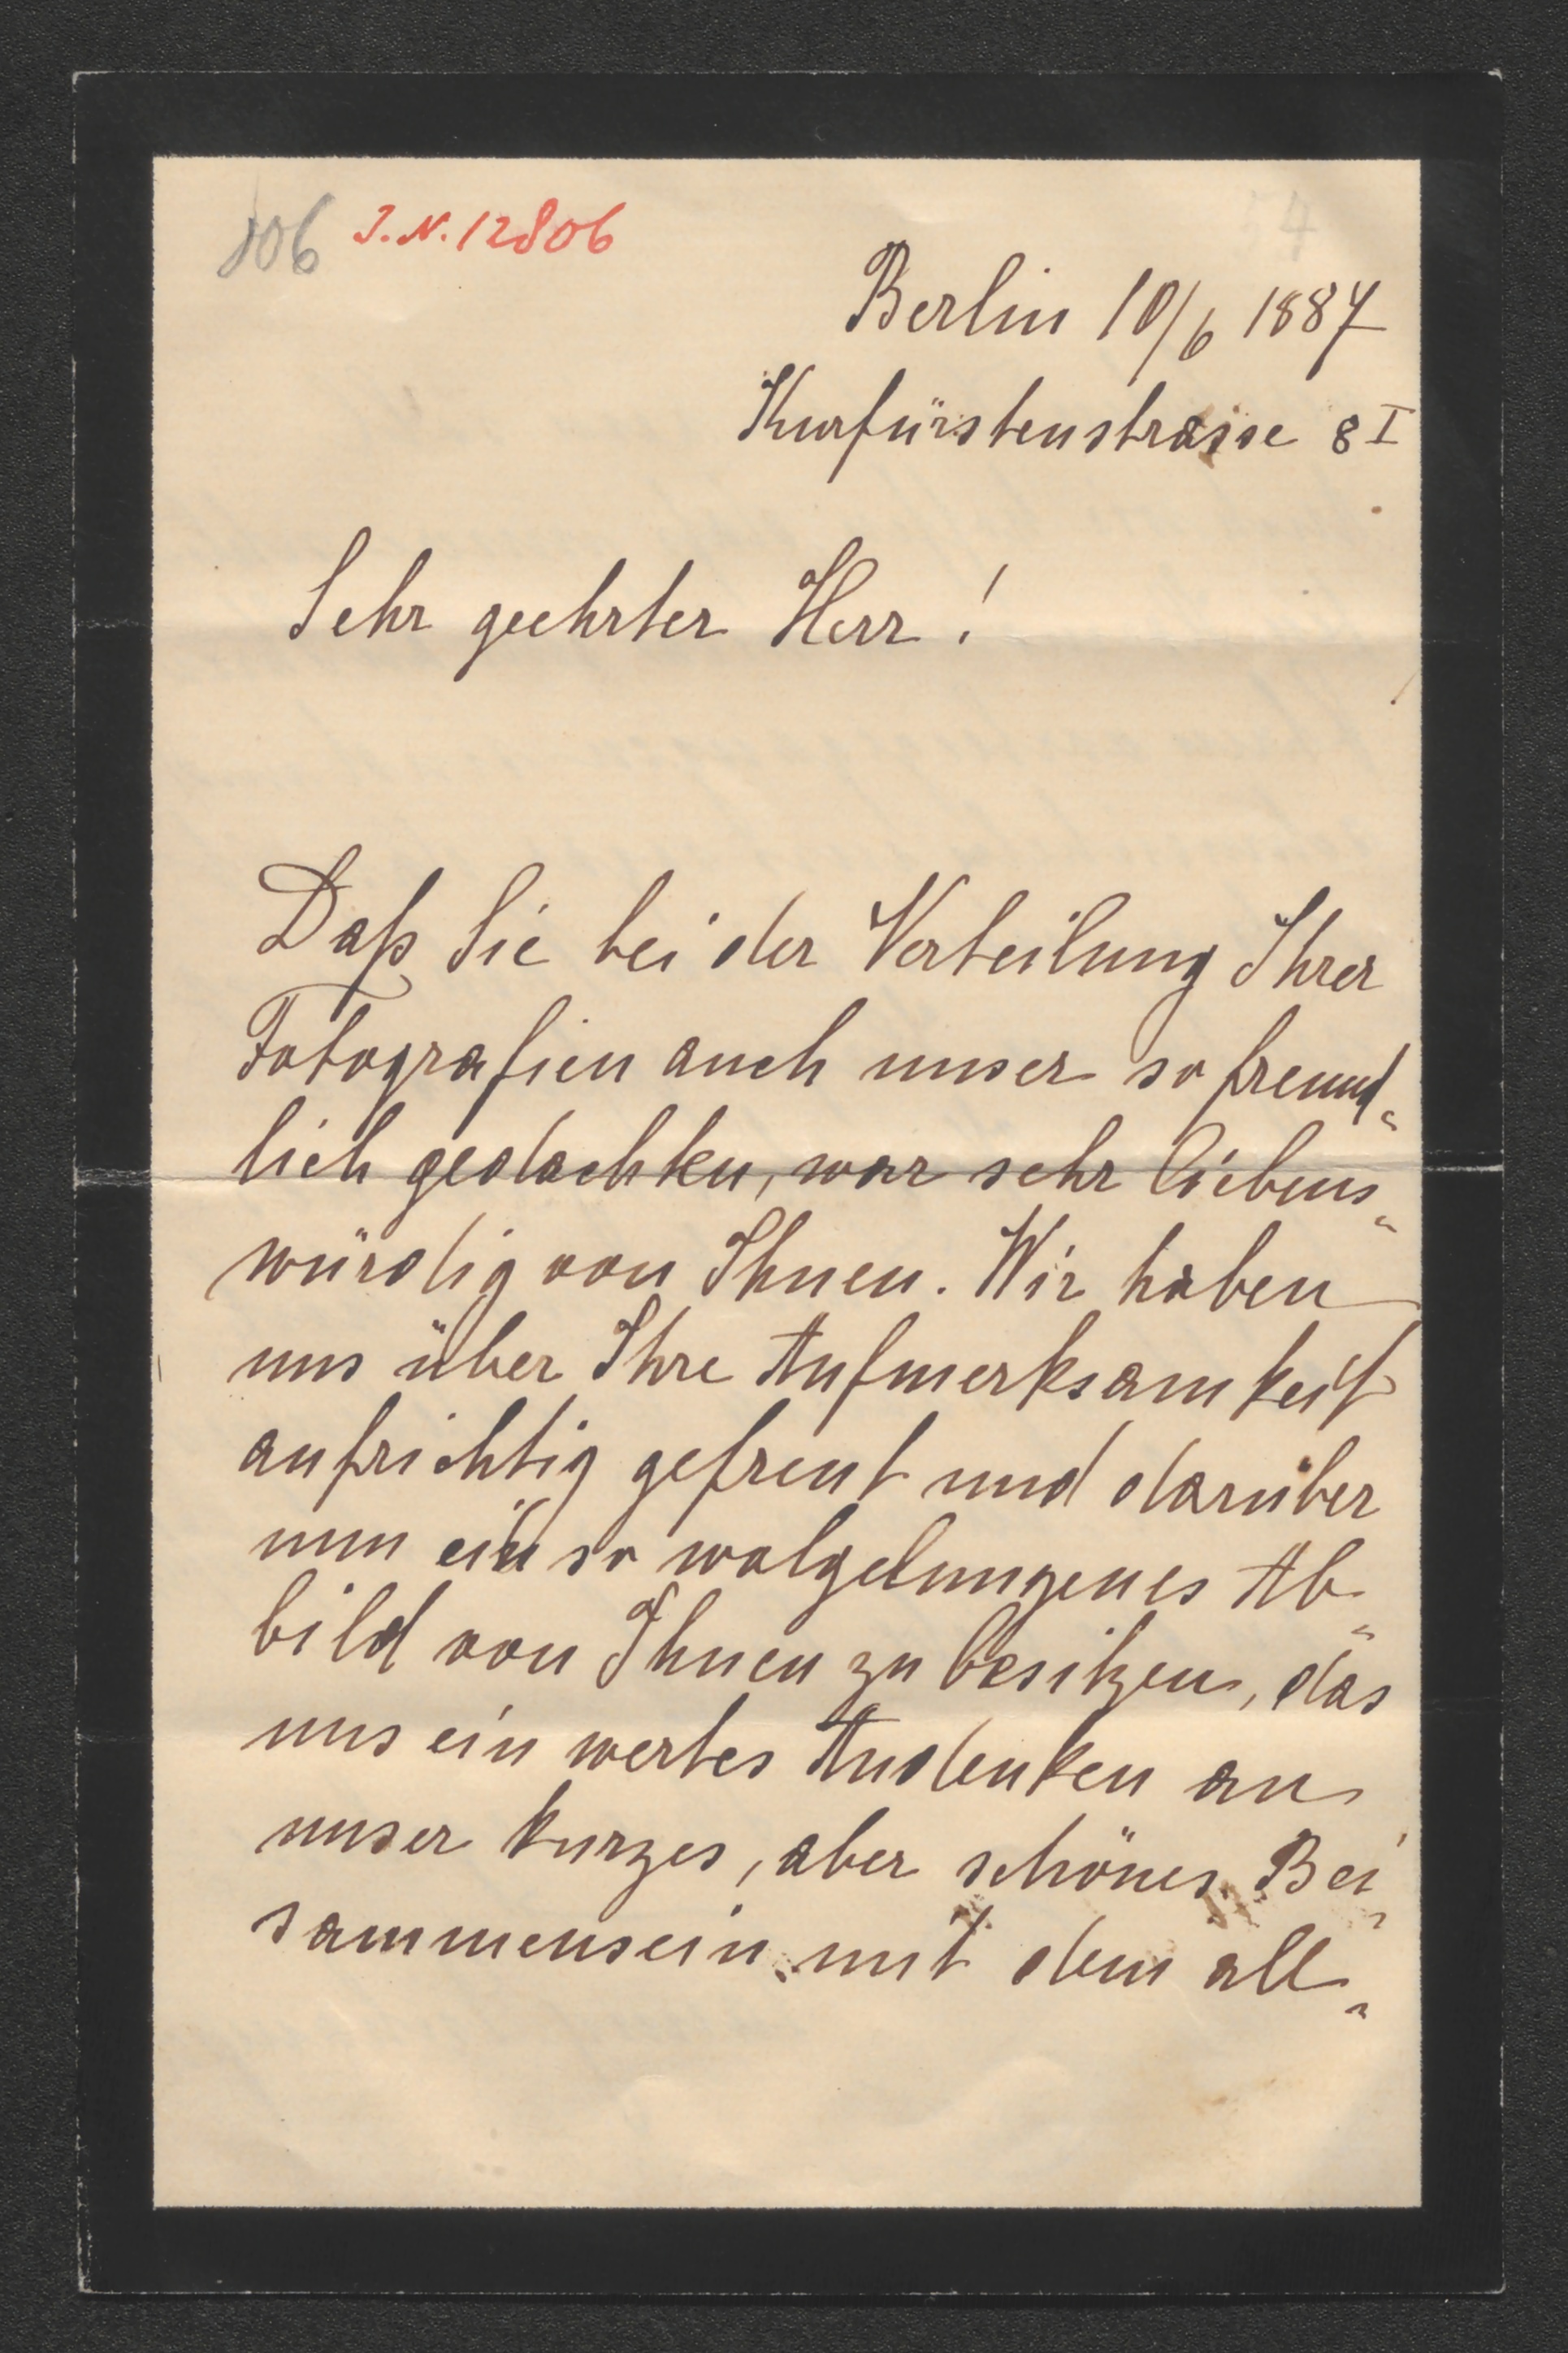 806 J.N. 12806
Berlin 10/6 1887
Kurfürstenstrasse 8 I
Sehr geehrter Herr!
Daß Sie bei der Verteilung Ihrer
Fotografien auch unser so freund„
lich gedachten, war sehr liebens„
würdig von Ihnen. Wir haben
uns über Ihre Aufmerksamkeit
aufrichtig gefreut und darüber
nun ein so wolgelungenes Ab„
bild von Ihnen zu besitzen, das
uns ein wertes Andenken an
unser kurzes, aber schönes Bei„
sammensein mit dem all„